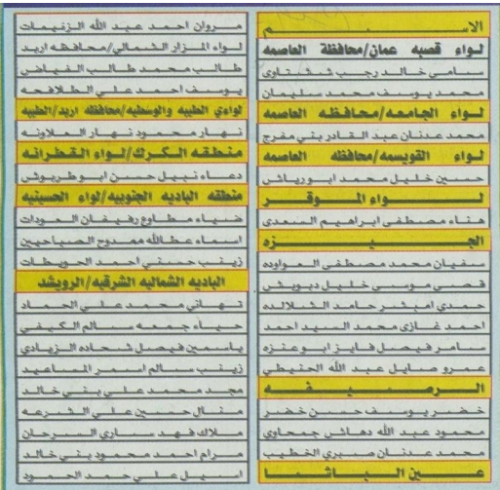 الاسم
لواء قصبه عمان/محافظة العاصمه
سامي خالد رجب ششتاوي
محمد يوسف محمد سليمان
لواء الجامعه/محافظه العاصمه
محمد عدنان عبد القادر بني مفرج
لواء القويسمه/محافظه العاصمه
حسين خليل محمد ابورياش
لواء الموقر
هناء مصطفى ابراهيم السعدي
الجيزه
سفيان محمد مصطفى الرواوده
قصي موسى خليل دبوبش
حمدي امبشر حامد الشلالده
احمد غازي محمد السيد احمد
سامر فيصل فايز ابو عنزه
عمرو صايل عبد الله الحنيطي
الرصيفه
خضر يوسف حسن خضر
محمود عبد الله دهاش جمحاوي
محمد عدنان صبري الخطيب
عين الباشا
مروان احمد عبد الله الزغيمات
لواء المزار الشمالي/محافظه اربد
طالب محمد طالب الفياض
يوسف احمد علي الطلافحه
لواءي الطيبه والوسطيه/محافظه اربد/الطيبه
نهار محمود نهار العلاونه
منطقه الكرك/لواء القطرانه
دعاء نبيل حسن ابوطربوش
منطقه الباديه الجنوبيه/لواء الحسينيه
ضياء مطاوع رفيفان العودات
اسماء عطالله ممدوح الصباحيين
زينب حسني احمد الحويطات
الباديه الشماليه الشرقيه/الرويشد
تهاني محمد علي الحماد
حياء جمعه سالم الكيفي
ياسمين فيصل شحاده الزيادي
زينب سالم اسمر المساعيد
مجد محمد علي بني خالد
منال حسين علي الشرعه
ملاك فهد ساري السرحان
مرام احمد محمود بني خالد
اسيل علي حمد الحمود